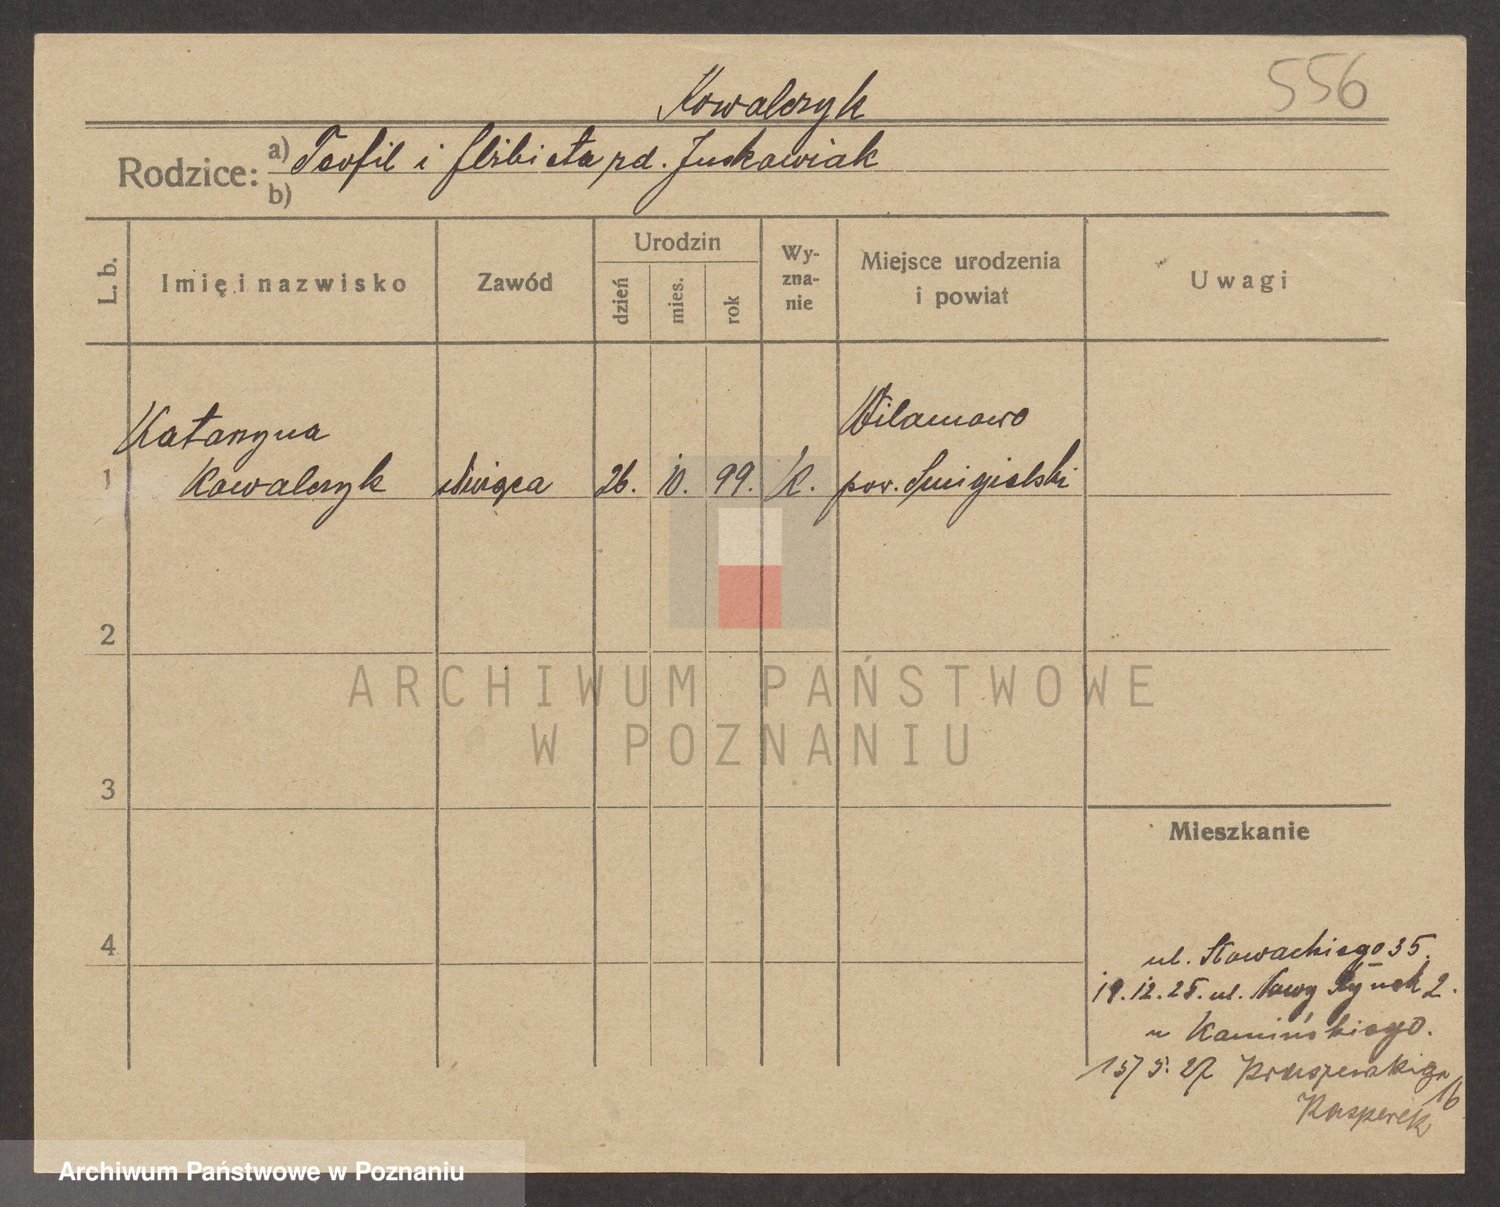 556
Kowalczyk
Rodzice: a) Teofil i Elżbieta rd. Juskowiak
b)
L. b.
Imię i nazwisko
Zawód
Urodzin
dzień
mies.
rok
Wy-
zna-
nie
Miejsce urodzenia
i powiat
Uwagi
Katarzyna
Wilanowo
1 Kowalczyk służąca 26. 10. 99. K. pow. Śmigielski
2
ARCHIWUM PAŃSTWOWE
W POZNANIU
3
Mieszkanie
4
ul. Słowackiego 35.
19.12.25. ul. Nowy Rynek 2.
u Kamińskiego.
15/5.27 Kraszewskiego
16
Kasperek
Archiwum Państwowe w Poznaniu